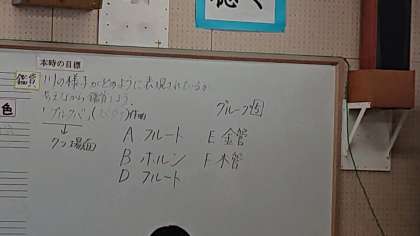 聴く
本時の目標
鑑賞
川の様子がどのように表現されているか
考えながら鑑賞しよう。
「ブルタバ」
作曲
↓
グループ
場面
A フルート
E 金管
B ホルン
F 木管
D フルート
色